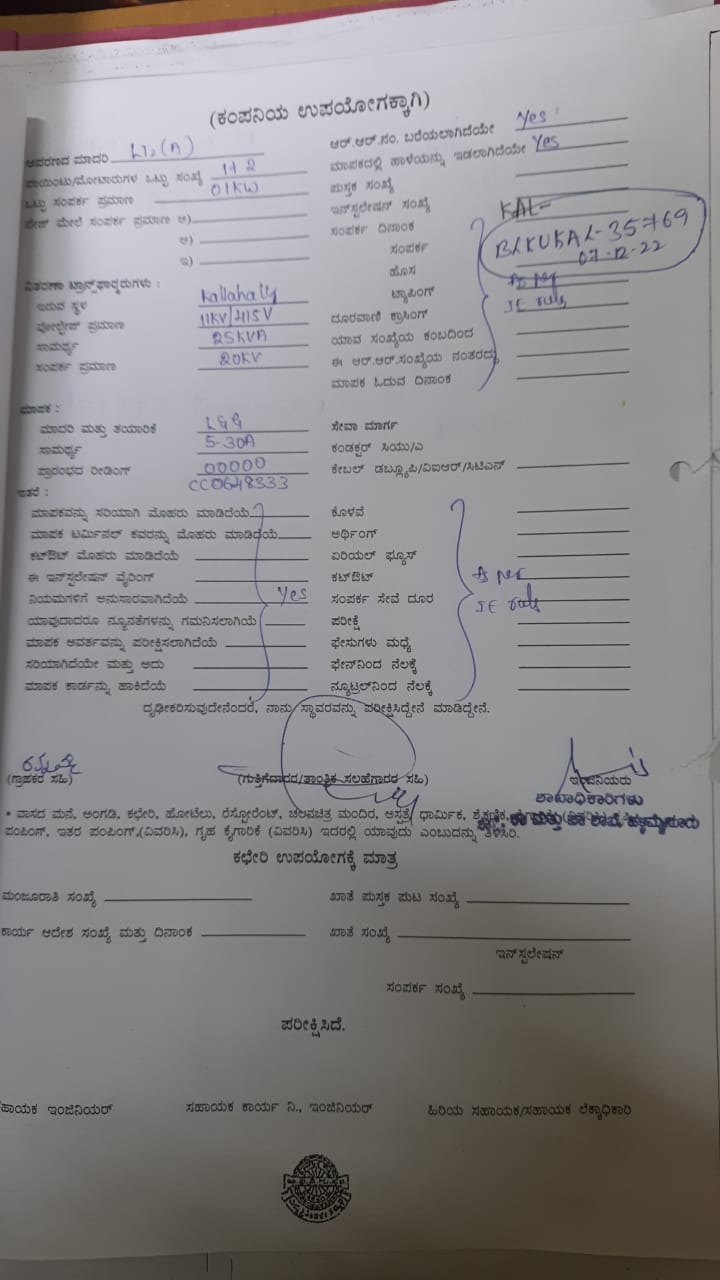 (ಕಂಪನಿಯ ಉಪಯೋಗಕ್ಕಾಗಿ)
ಆವರಣದ ಮಾದರಿ LT2(A)
ಪಾಯಿಂಟು/ಮೋಟಾರುಗಳ ಒಟ್ಟು ಸಂಖ್ಯೆ
ಒಟ್ಟು ಸಂಪರ್ಕ ಪ್ರಮಾಣ 01KW
ಮೇಲೆ ಸಂಪರ್ಕ ಪ್ರಮಾಣ ಅ)
ಆ)
ಇ)
ವಿತರಣಾ ಟ್ರಾನ್ಸ್‌ಫಾರ್ಮರುಗಳು :
ಇರುವ ಸ್ಥಳ Kallahally
ವೋಲ್ಟೇಜ್ ಪ್ರಮಾಣ 11KV/415V
ಸಾಮರ್ಥ್ಯ 25KVA
ಸಂಪರ್ಕ ಪ್ರಮಾಣ 20KV
ಆರ್.ಆರ್.ನಂ. ಬರೆಯಲಾಗಿದೆಯೇ Yes
ಮಾಪಕದಲ್ಲಿ ಹಾಳೆಯನ್ನು ಇಡಲಾಗಿದೆಯೇ Yes
ಪುಸ್ತಕ ಸಂಖ್ಯೆ
ಇನ್‌ಸ್ಟಲೇಷನ್ ಸಂಖ್ಯೆ KAL-
ಸಂಪರ್ಕ ದಿನಾಂಕ
BLKUKAL-35769
ಸಂಪರ್ಕ
07-12-22
ಹೊಸ
ಟ್ಯಾಪಿಂಗ್
ದೂರವಾಣಿ ಕ್ರಾಸಿಂಗ್
ಯಾವ ಸಂಖ್ಯೆಯ ಕಂಬದಿಂದ
ಈ ಆರ್.ಆರ್.ಸಂಖ್ಯೆಯ ನಂತರದ್ದು
ಮಾಪಕ ಓದುವ ದಿನಾಂಕ
ಮಾಪಕ :
ಮಾದರಿ ಮತ್ತು ತಯಾರಿಕೆ L&G
ಸಾಮರ್ಥ್ಯ 5-30A
ಪ್ರಾರಂಭದ ರೀಡಿಂಗ್ 00000
CC0648333
ಸೇವಾ ಮಾರ್ಗ
ಕಂಡಕ್ಟರ್ ಸಿಯು/ಎ
ಕೇಬಲ್ ಡಬ್ಲ್ಯೂಪಿ/ವಿಐಆರ್/ಸಿಟಿಎನ್
ಇತರೆ :
ಮಾಪಕವನ್ನು ಸರಿಯಾಗಿ ಮೊಹರು ಮಾಡಿದೆಯೆ
ಮಾಪಕ ಟರ್ಮಿನಲ್ ಕವರನ್ನು ಮೊಹರು ಮಾಡಿದೆಯೆ
ಕಟ್‌ಔಟ್ ಮೊಹರು ಮಾಡಿದೆಯೆ
ಈ ಇನ್‌ಸ್ಟಲೇಷನ್ ವೈರಿಂಗ್
ನಿಯಮಗಳಿಗೆ ಅನುಸಾರವಾಗಿದೆಯೆ Yes
ಯಾವುದಾದರೂ ನ್ಯೂನತೆಗಳನ್ನು ಗಮನಿಸಲಾಗಿಯೆ
ಮಾಪಕ ಅವರ್ತವನ್ನು ಪರೀಕ್ಷಿಸಲಾಗಿದೆಯೆ
ಸರಿಯಾಗಿದೆಯೇ ಮತ್ತು ಅದು
ಮಾಪಕ ಕಾರ್ಡನ್ನು ಹಾಕಿದೆಯೆ
ಕೊಳವೆ
ಅರ್ಥಿಂಗ್
ಏರಿಯಲ್ ಫ್ಯೂಸ್
ಕಟ್‌ಔಟ್
ಸಂಪರ್ಕ ಸೇವೆ ದೂರ
ಪರೀಕ್ಷೆ
ಫೇಸುಗಳು ಮಧ್ಯೆ
ಫೇಸ್‌ನಿಂದ ನೆಲಕ್ಕೆ
ನ್ಯೂಟ್ರಲ್‌ನಿಂದ ನೆಲಕ್ಕೆ
ದೃಢೀಕರಿಸುವುದೇನೆಂದರೆ, ನಾನು ಸ್ಥಾವರವನ್ನು ಪರೀಕ್ಷಿಸಿದ್ದೇನೆ ಮಾಡಿದ್ದೇನೆ.
(ಗ್ರಾಹಕರ ಸಹಿ) (ಗುತ್ತಿಗೆದಾರರ/ತಾಂತ್ರಿಕ ಸಲಹೆಗಾರರ ಸಹಿ) ಇಂಜಿನಿಯರು
ಶಾಖಾಧಿಕಾರಿಗಳು
• ವಾಸದ ಮನೆ, ಅಂಗಡಿ, ಕಛೇರಿ, ಹೋಟೆಲು, ರೆಸ್ಟೋರೆಂಟ್, ಚಲನಚಿತ್ರ ಮಂದಿರ, ಆಸ್ಪತ್ರೆ, ಧಾರ್ಮಿಕ, ಶೈಕ್ಷಣಿಕ,
ಪಂಪಿಂಗ್, ಇತರ ಪಂಪಿಂಗ್,(ವಿವರಿಸಿ), ಗೃಹ ಕೈಗಾರಿಕೆ (ವಿವರಿಸಿ) ಇದರಲ್ಲಿ ಯಾವುದು ಎಂಬುದನ್ನು ತಿಳಿಸಿರಿ.
ಕಛೇರಿ ಉಪಯೋಗಕ್ಕೆ ಮಾತ್ರ
ಮಂಜೂರಾತಿ ಸಂಖ್ಯೆ ಖಾತೆ ಪುಸ್ತಕ ಪುಟ ಸಂಖ್ಯೆ
ಕಾರ್ಯ ಆದೇಶ ಸಂಖ್ಯೆ ಮತ್ತು ದಿನಾಂಕ ಖಾತೆ ಸಂಖ್ಯೆ
ಇನ್‌ಸ್ಟಲೇಷನ್
ಸಂಪರ್ಕ ಸಂಖ್ಯೆ
ಪರೀಕ್ಷಿಸಿದೆ.
ಇಂಜಿನಿಯರ್ ಸಹಾಯಕ ಕಾರ್ಯ ನಿ., ಇಂಜಿನಿಯರ್ ಹಿರಿಯ ಸಹಾಯಕ/ಸಹಾಯಕ ಲೆಕ್ಕಾಧಿಕಾರಿ